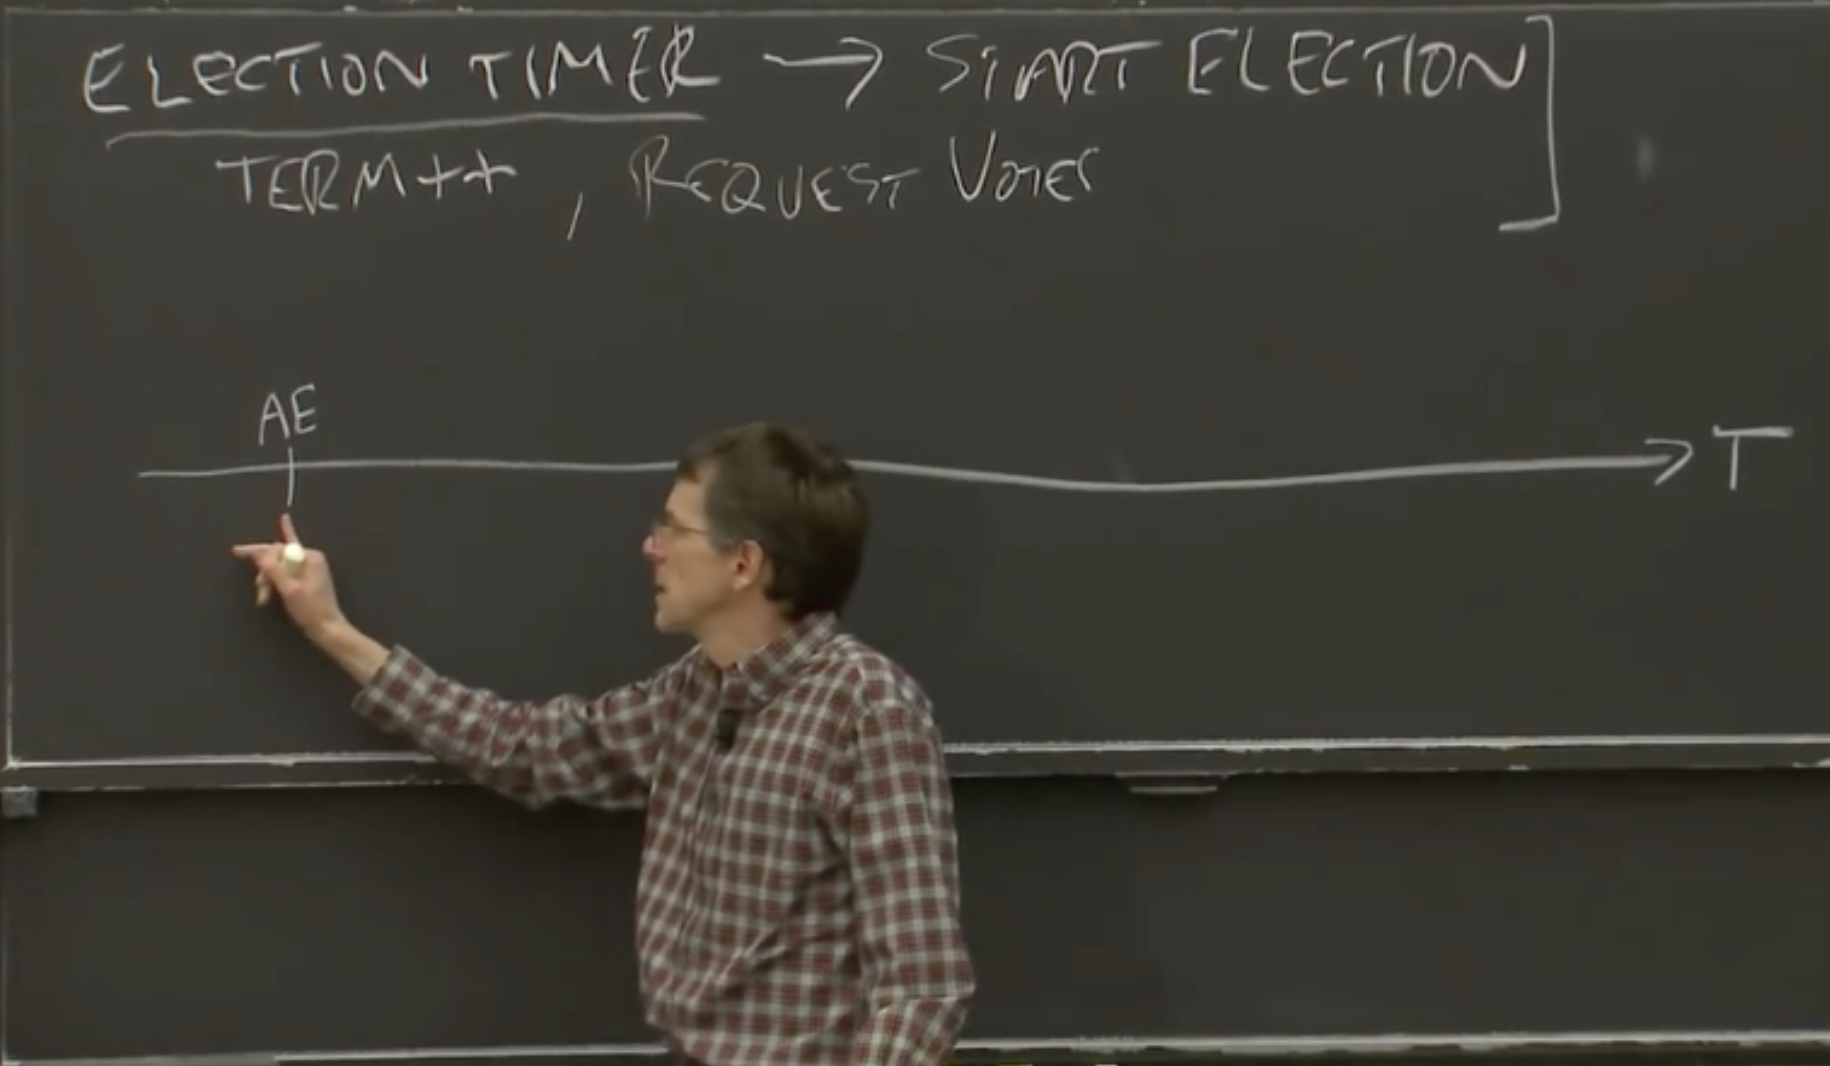 ELECTION TIMER → START ELECTION]
TERM++, REQUEST VOTES
AE
T